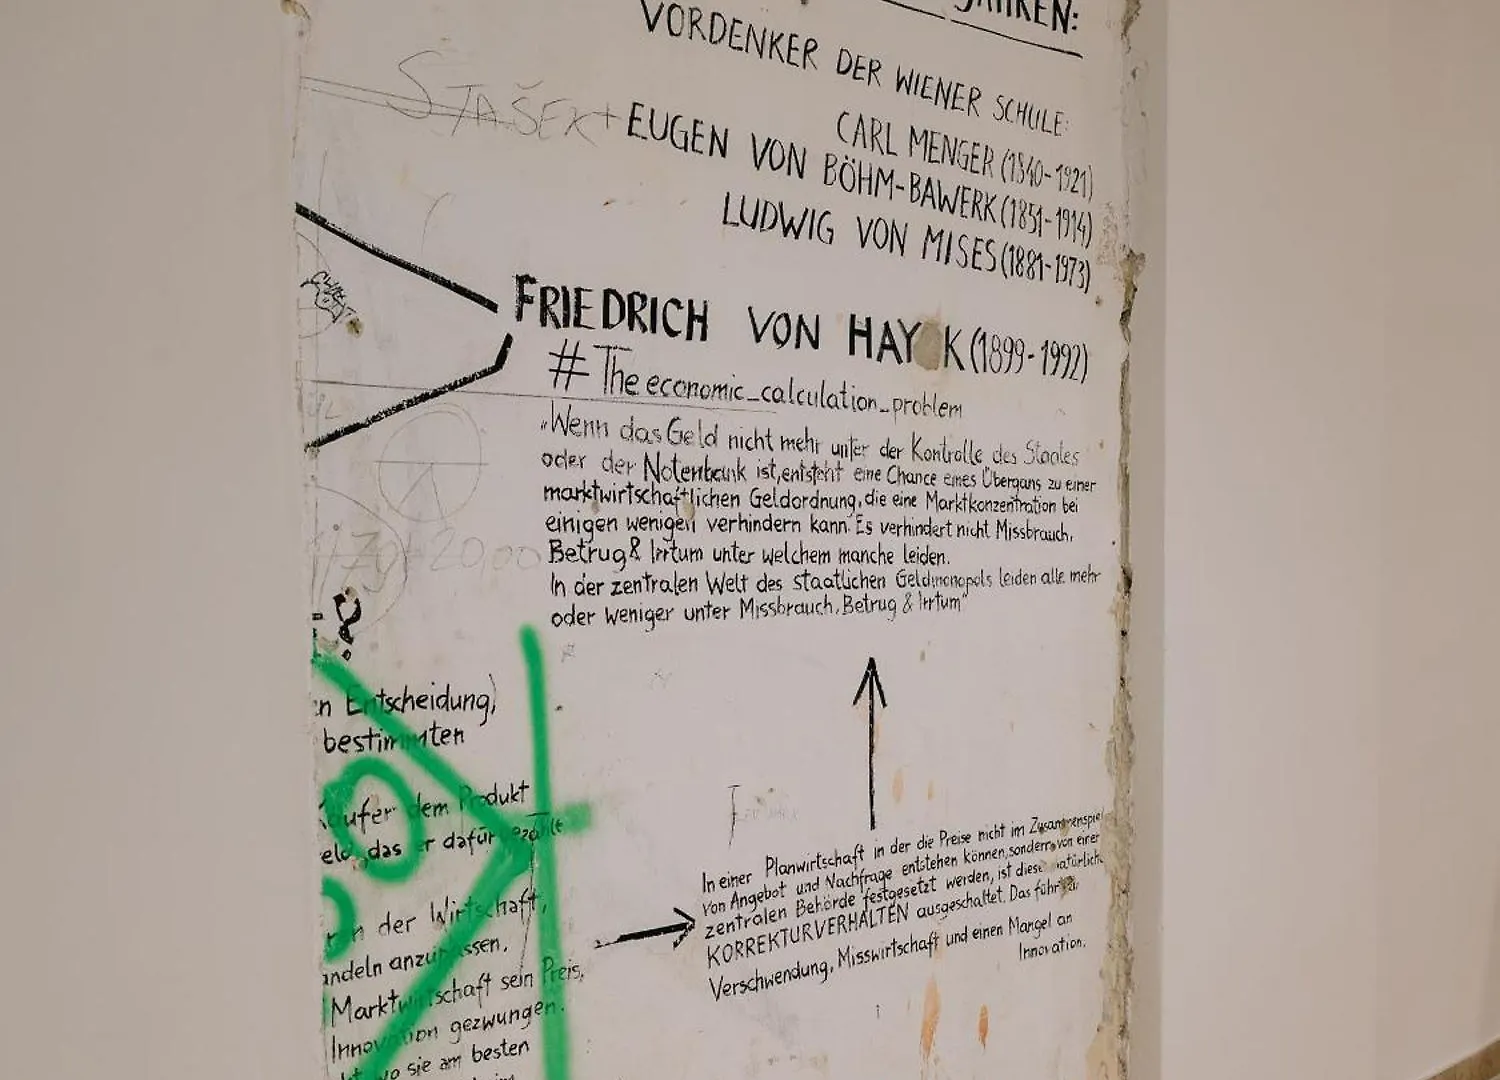 VORDENKER DER WIENER SCHULE:
CARL MENGER (1840-1921)
STAŠEK + EUGEN VON BÖHM-BAWERK (1851-1914)
LUDWIG VON MISES (1881-1973)
FRIEDRICH VON HAY K (1899-1992)
# The economic_calculation_problem
„Wenn das Geld nicht mehr unter der Kontrolle des Staates
oder der Notenbank ist, entsteht eine Chance eines Übergans zu einer
marktwirtschaftlichen Geldordnung, die eine Marktkonzentration bei
einigen wenigen verhindern kann. Es verhindert nicht Missbrauch,
Betrug & Irrtum unter welchem manche leiden.
In der zentralen Welt des staatlichen Geldmonopols leiden alle mehr
oder weniger unter Missbrauch, Betrug & Irrtum"
?
Entscheidung)
bestimmten
dem Produkt
das er dafür
der Wirtschaft,
Marktwirtschaft sein Preis,
Innovation gezwungen.
wo sie am besten
In einer Planwirtschaft in der die Preise nicht im Zusammenspiel
von Angebot und Nachfrage entstehen können, sondern von einer
zentralen Behörde festgesetzt werden, ist diese natürliche
KORREKTURVERHALTEN ausgeschaltet. Das führt zu
Verschwendung, Misswirtschaft und einen Mangel an
Innovation.